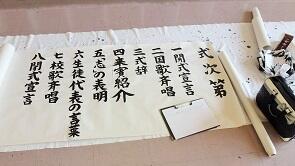 式次第
一開式宣言
二国歌斉唱
三式辞
四来賓紹介
五志の表明
六生徒代表の言葉
七校歌斉唱
八閉式宣言